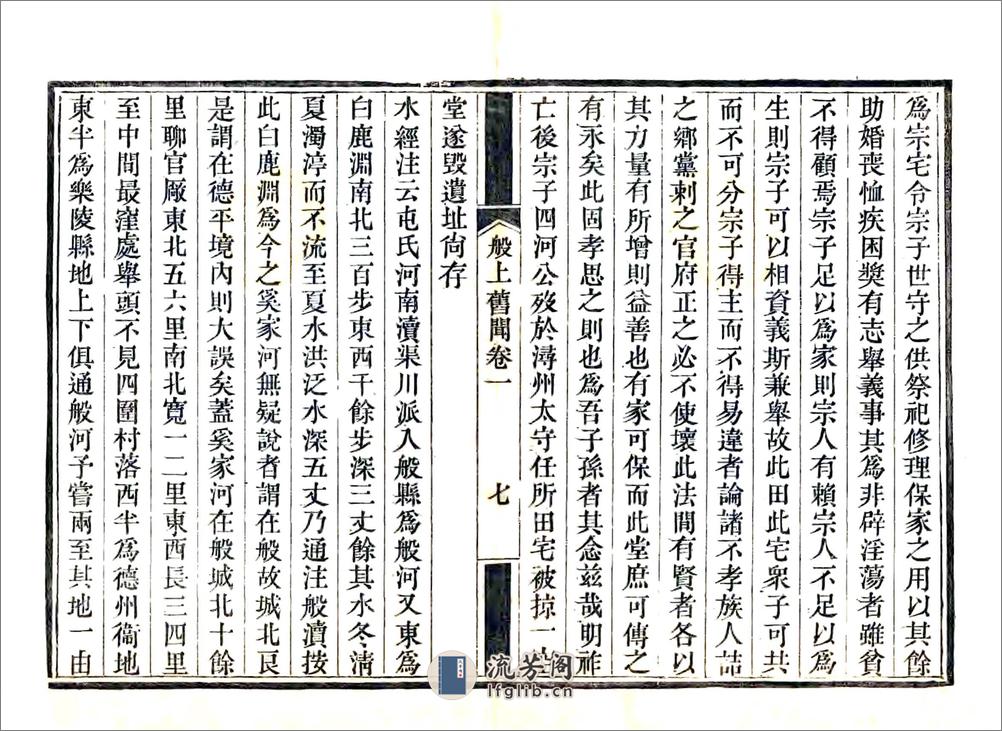 爲宗宅令宗子世守之供祭祀修理保家之用以其餘
助婚喪恤疾困奬有志舉義事其爲非辟淫蕩者雖貧
不得顧焉宗子足以爲家則宗人有賴宗人不足以爲
生則宗子可以相資義斯兼舉故此田此宅衆子可共
而不可分宗子得主而不得易違者論諸不孝族人詰
之鄉黨刺之官府正之必不使壞此法間有賢者各以
其力量有所增則益善也有家可保而此堂庶可傳之
有永矣此固孝思之則也爲吾子孫者其念兹哉明祚
亡後宗子四河公歿於潯州太守任所田宅被掠一
般上舊聞卷一
七
堂遂毀遺址尙存
水經注云屯氏河南瀆渠川派入般縣爲般河又東爲
白鹿淵南北三百步東西千餘步深三丈餘其水冬淸
夏濁渟而不流至夏水洪泛水深五丈乃通注般瀆按
此白鹿淵爲今之奚家河無疑說者謂在般故城北艮
是謂在德平境內則大誤矣蓋奚家河在般城北十餘
里聊官厰東北五六里南北寬一二里東西長三四里
至中間最窪處舉頭不見四圍村落西半爲德州衞地
東半爲樂陵縣地上下俱通般河予嘗兩至其地一由
流芳阁
lfglib.cn